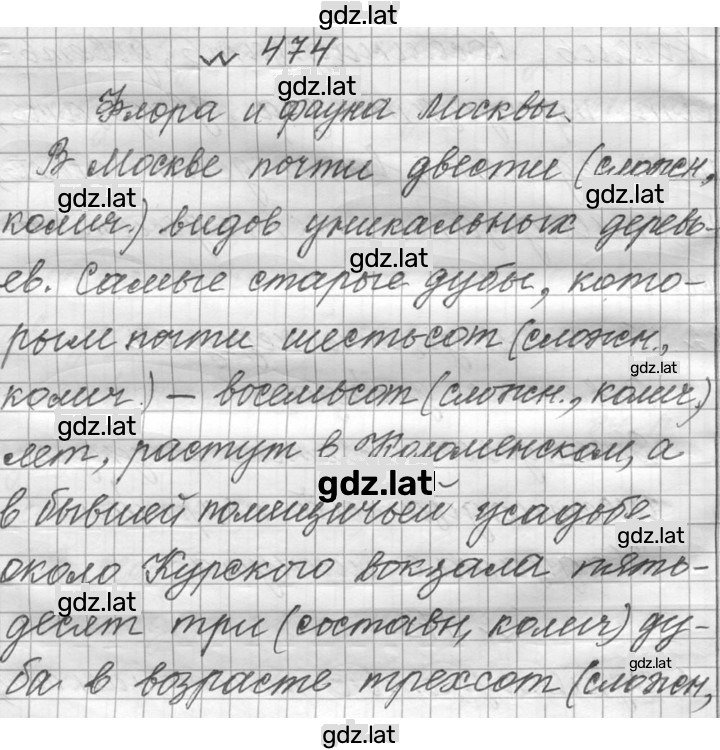 gdz.lat
№ 474
gdz.lat
Флора и фауна Москвы.
В Москве почти двести (сложн.,
gdz.lat gdz.lat
колич.) видов уникальных деревь-
gdz.lat
ев. Самые старые дубы, кото-
рым почти шестьсот (сложн.,
gdz.lat
колич.) – восемьсот (сложн., колич.)
gdz.lat
лет, растут в Коломенском, а
gdz.lat
в бывшей помещичьей усадьбе
gdz.lat
около Курского вокзала пять-
gdz.lat
десят три (составн., колич.) ду-
gdz.lat
ба в возрасте трехсот (сложн.,
gdz.lat